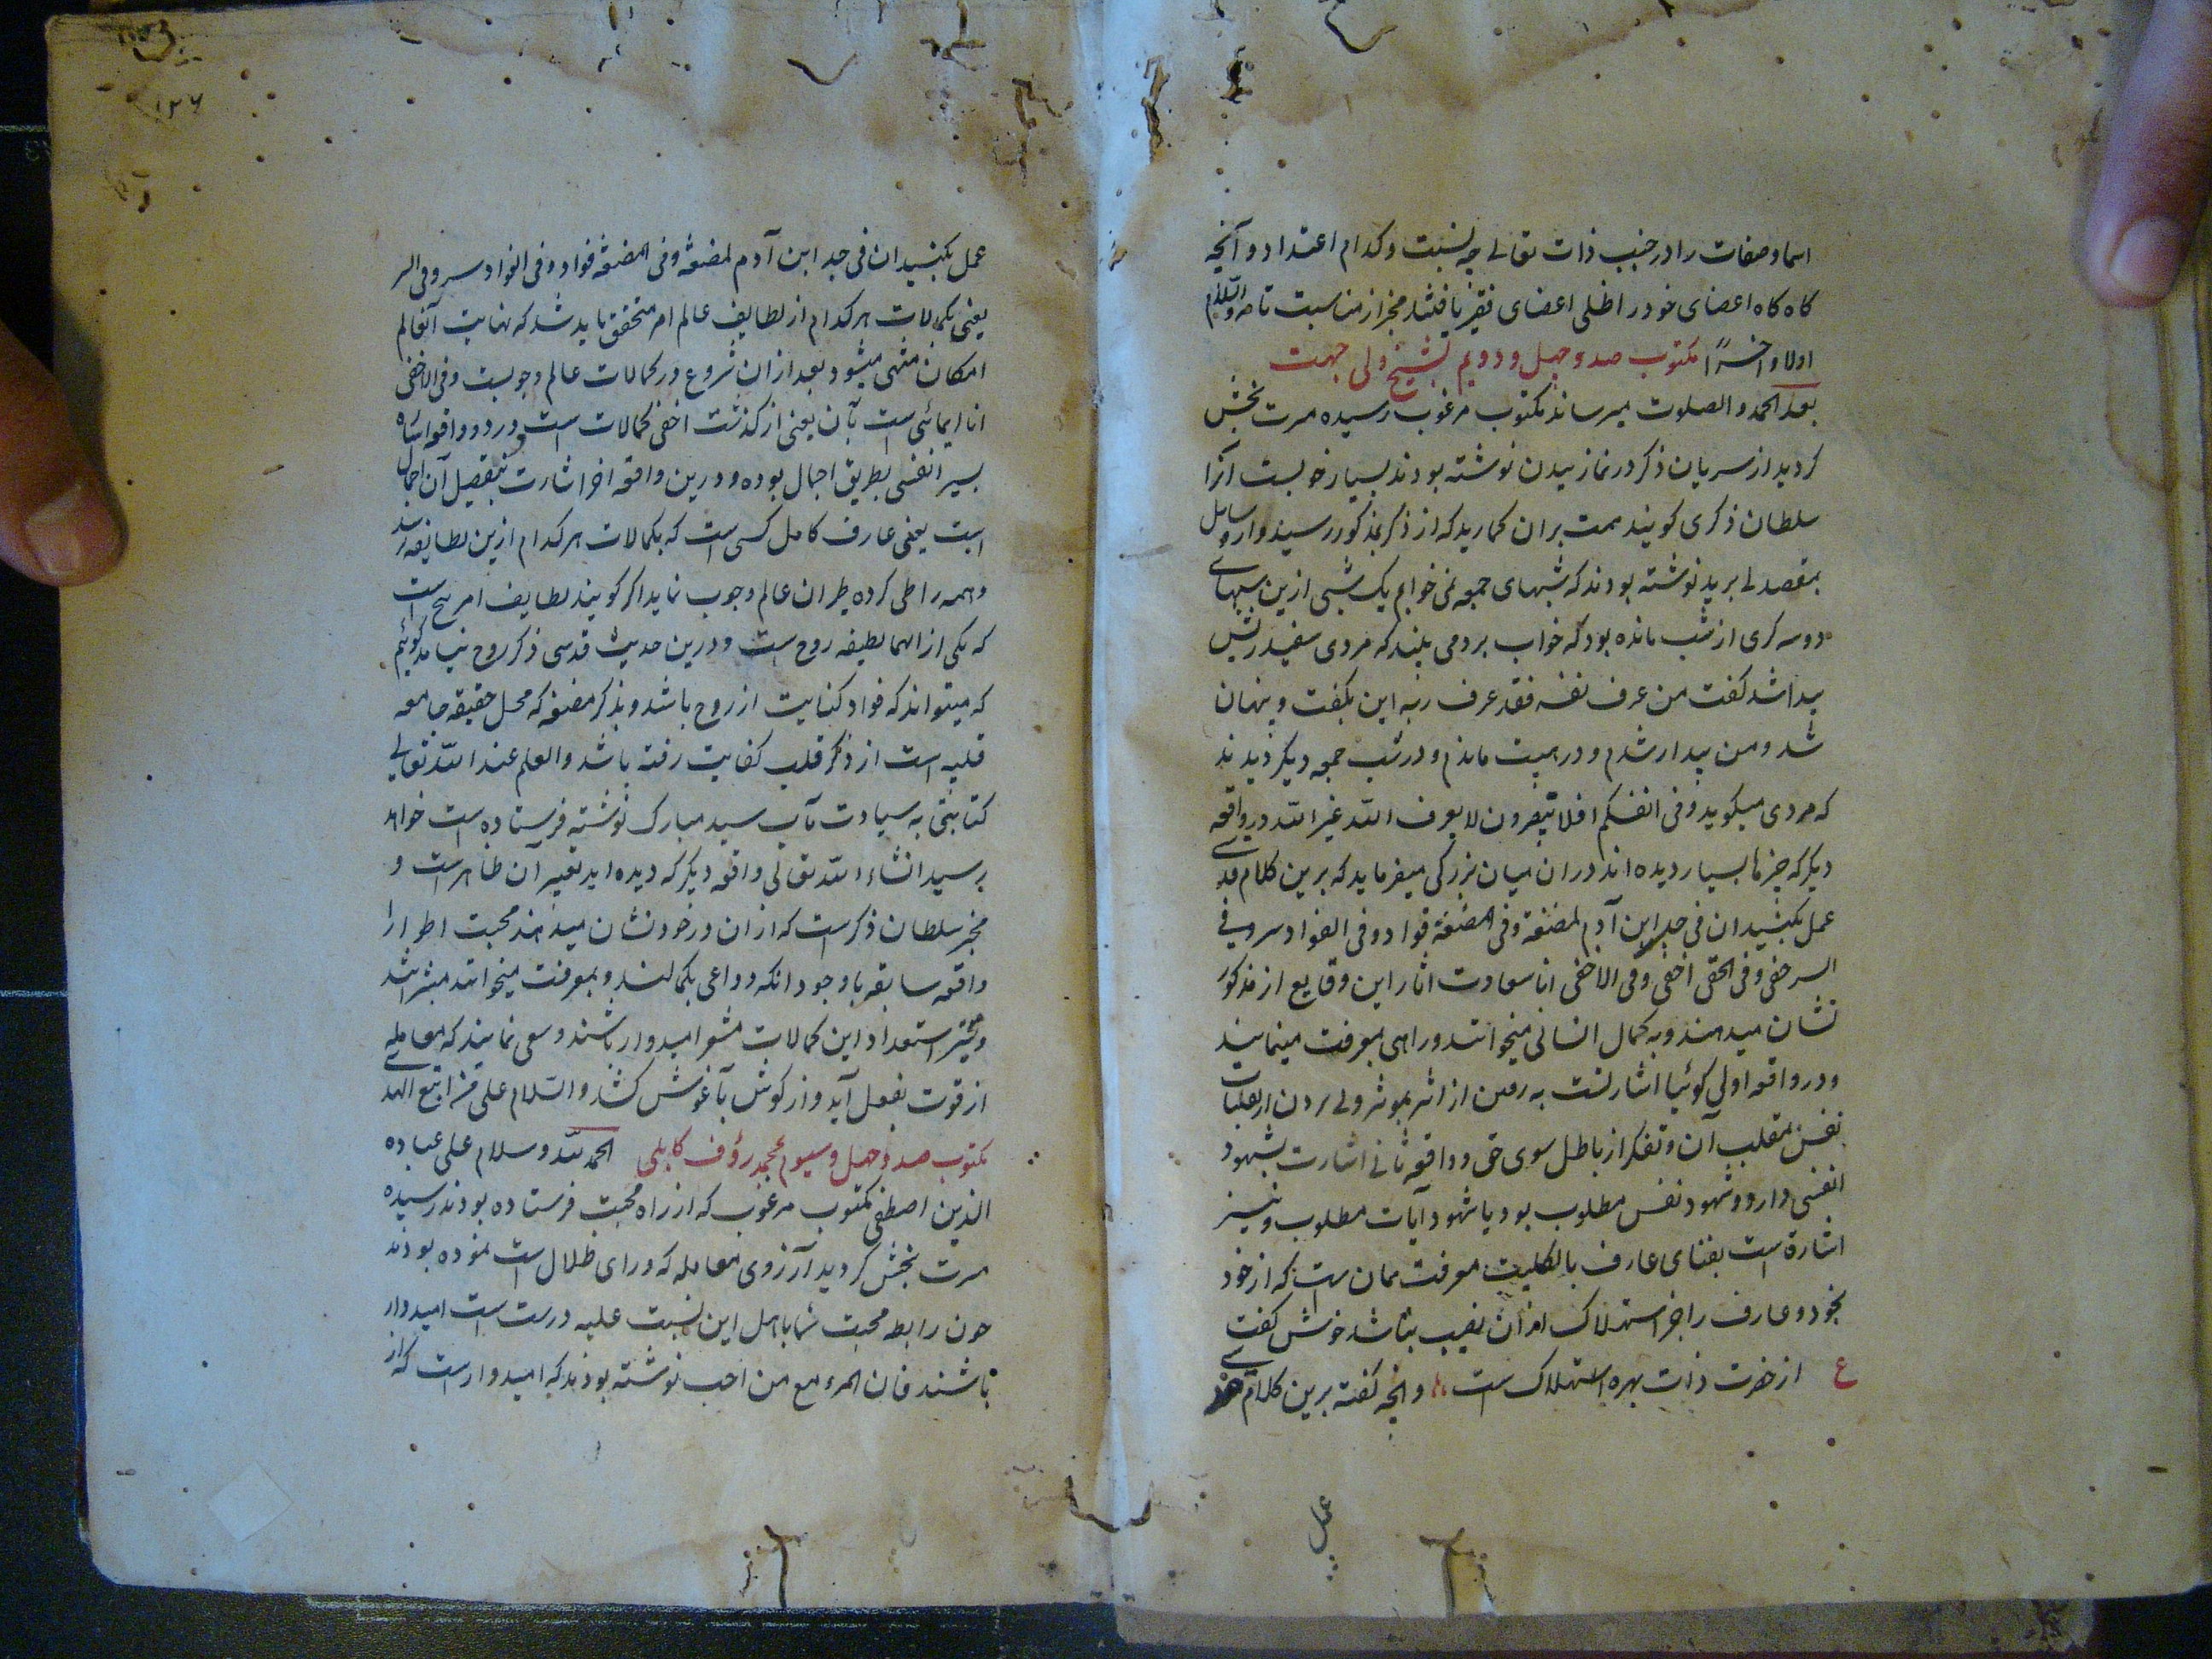 اسما و صفات را در جنب ذات تعالے چه نسبت و کدام اعتداد و آنچه
کاه کاه اعضای خود را ظلی اعضای فقیر یافتند مخبر از مناسبت تامه والسلام
اولا و اخرًا مکتوب صد و چهل و دویم بشیخ ولی جهت
بعد الحمد و الصلوت میرساند مکتوب مرغوب رسیده مسرت بخش
کردید از سریان ذکر در نماز بیدن نوشته بودند بسیار خوبست آنرا
سلطان ذکری کویند همت بران کمارید که از ذکر بمذکور رسید و از وسایل
بمقصد لے برید نوشته بودند که شبهای جمعه نمی خوابم یک شبی ازین شبهای
دو سه کری از شب مانده بود که خواب بردمی بیند که مردی سفید ریش
پیدا شد کفت من عرف نفسه فقد عرف ربه این بکفت و پنهان
شد و من بیدار شدم و در هیبت ماندم و در شب جمعه دیکر دیدند
که مردی میکوید و فی انفسکم افلا تبصرون لا یعرف الله غیر الله در واقعه
دیکر که چیزها بسیار دیده اند در ان میان بزرکی میفرماید که برین کلام قدسے
عمل بکنید ان فی جسد ابن آدم لمضغة و فی المضغة فواد و فی الفواد سر و فی
السر خفی و فی الخفی اخفی و فی الاخفی انا سعادت اثار این وقایع از مذکور
نشان میدهند و به کمال انسانی میخوانند و راهی بمعرفت مینمایند
و در واقعه اولی کوئیا اشارتست به رفتن از اثر بموثر و لے بردن از تقلبات
نفس بمقلب آن و تفکر از باطل سوی حق و واقعه ثانے اشارت بشهود
انفسی دارد و شهود نفس مطلوب بود یا شهود آیات مطلوب و نیز
اشارة است بفنای عارف بالکلیت معرفت همان ست که از خود
بخود و عارف را جز استهلاک ازان نصیب نباشد خوش کفت
ع از حضرت ذات بهره استهلاک است و انچه کفته برین کلام قدسے
عمل
۱۲۶
عمل بکنید ان فی جسد ابن آدم لمضغة و فی المضغة فواد و فی الفواد سر و فی السر
یعنی بکمالات هر کدام از لطایف عالم امر متحقق باید شد که نهایت آنعالم
امکان منتهی میشود بعد ازان شروع در کمالات عالم وجوبست و فی الاخفی
انا ایمائی است بآن یعنی از کذشت اخفی کمالات است و در دو واقعه اشاره
بسیر انفسی بطریق اجمال بوده و درین واقعه اخر اشارت بتفصیل آن اجمال
است یعنی عارف کامل کسی است که بکمالات هر کدام ازین لطایف رسد
و همه را طی کرده طیران عالم وجوب نماید اکر کویند لطایف امر پنج است
که یکی از انها لطیفه روح ست و درین حدیث قدسی ذکر روح نیامد کوئیم
که میتواند که فواد کنایت از روح باشد و بذکر مضغه که محل حقیقه جامعه
قلبیه است از ذکر قلب کفایت رفته باشد و العلم عند الله تعالے
کتابتی به سیادت مآب سید مبارک نوشته فرستاده است خواهد
رسید انشاء الله تعالی واقعه دیکر که دیده اید تعبیر آن ظاهر است و
مخبر سلطان ذکر است که ازان در خود نشان میدهند محبت اطوارا
واقعه سابقه باوجود انکه دواعی بکمالند و بمعرفت میخوانند مبشر اند
و مخبر استعداد این کمالات مشعر امیدوار باشند و سعی نمایند که معاملے
از قوت بفعل آید و از کوش بآغوش کشد و السلام علی من اتبع الهدی
مکتوب صد و چهل و سیوم بمحمد رؤف کابلی الحمد لله و سلام علی عباده
الذین اصطفی مکتوب مرغوب که از راه محبت فرستاده بودند رسیده
مسرت بخش کردید آرزوی معامله که ورای ظلال است نموده بودند
چون رابطه محبت شما باهل این نسبت علیه درست است امیدوار
باشند فان المرء مع من احب نوشته بودند که امیدوارست که از